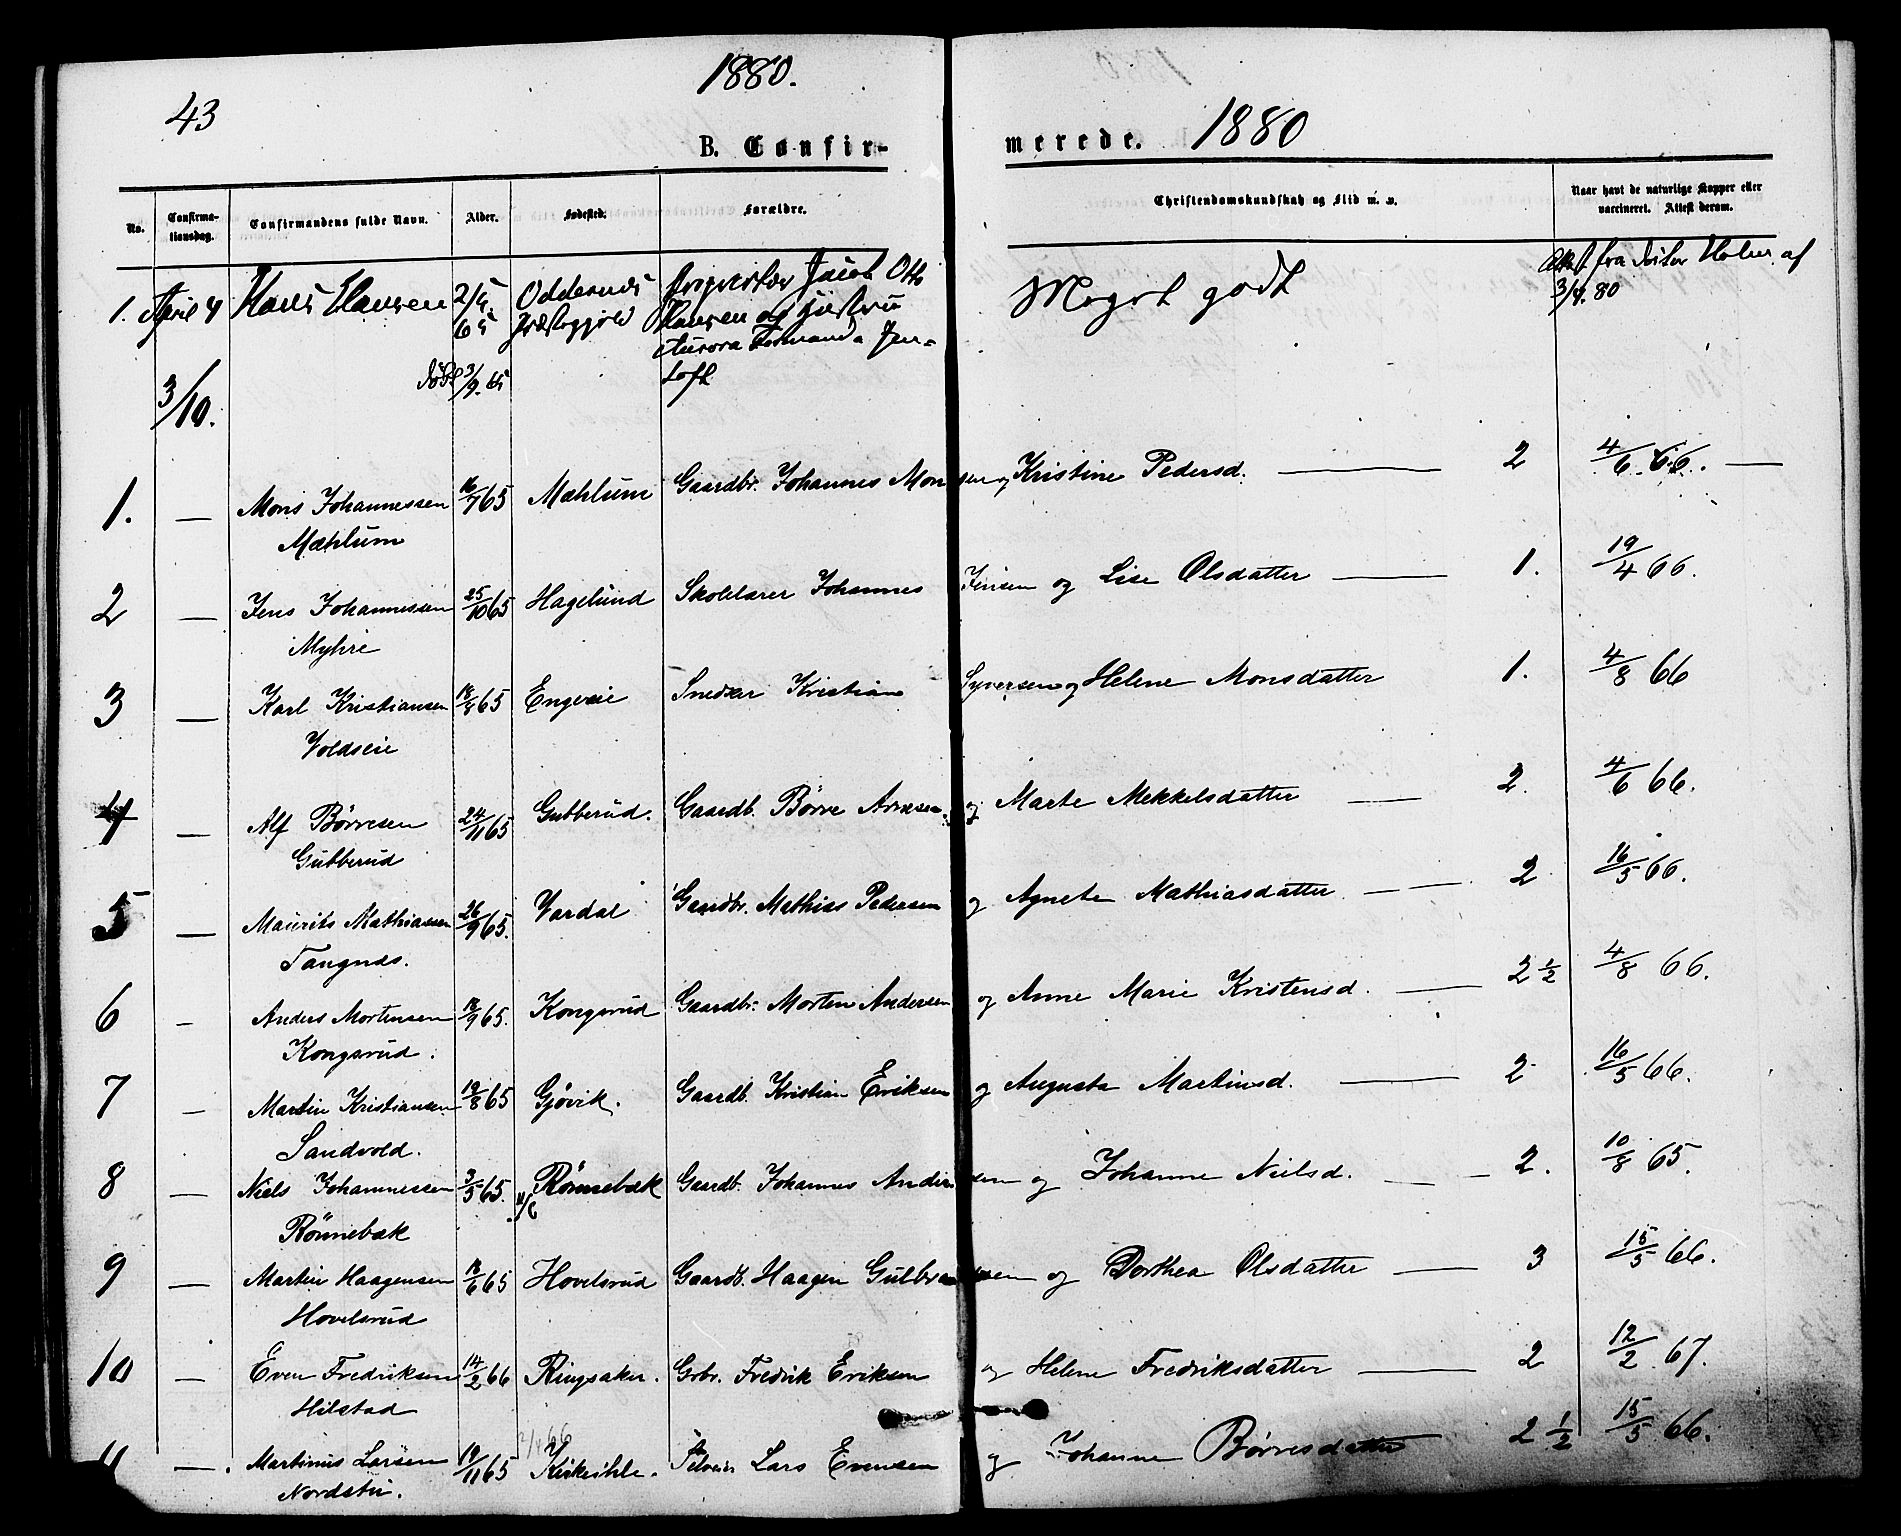 1880.
43
B. Confir-
merede. 1880
No.
Confirma-
tionsdag.
Confirmandens fulde Navn.
Alder.
Fødested.
Forældre.
Christendomskundskab og Flid m. v.
Naar havt de naturlige Kopper eller
vaccineret. Attest derom.
1. April 4 Hans Hansen 2/5 65 Oddernæs Præstegjeld
Jacob Otto
Hansen og Hustru
Aurora Fernanda Jen-
toft
døbt 3/9. 65
Meget godt
fra Holm af
3/4. 80
3/10.
1. — Mons Johannessen 16/7 65 Mæhlum Gaardbr. Johannes Monsen og Kristine Pedersd. — 2 4/6. 66. —
Mæhlum
2 — Jens Johannessen 25/10 65 Hagelund Skolelærer Johannes Jensen og Lise Olsdatter — 1. 19/4 66.
Myhre
3 — Karl Kristiansen 18/8 65 Engeeie Snedker Kristian Syversen og Helene Monsdatter 1. 4/8 66
Voldseie
4 — Alf Børresen 24/11 65 Gubberud. Gaardb. Børre Arnesen og Marte Mekkelsdatter — 2. 4/6 66.
Gubberud
5 — Maurits Mathiassen 26/9 65. Vardal Gaardbr. Mathias Pedersen og Agnete Mathiasdatter — — 2 16/5 66.
Tangnæs.
6 — Anders Mortensen 18/9 65. Kongsrud Gaardbr. Morten Andersen og Anne Marie Kristensd. — 2 1/2 4/8 66.
Kongsrud.
7 — Martin Kristiansen 19/8 65 Gjøvik. Gaardb. Kristian Eriksen og Augusta Martinsd. — 2 16/5 66.
Sandvold.
8 — Niels Johannessen 3/5 65. Rønnebæk Gaardb. Johannes Andersen og Johanne Nielsd. — — 2. 10/8 65.
Rønnebæk
9 — Martin Haagensen 18/6 65 Hovelsrud Gaardb. Haagen Gulbransen og Dorthea Olsdatter — 3 15/5 66.
Hovelsrud
10 — Even Fredriksen 14/2 66 Ringsaker. Grbr. Fredrik Eriksen og Helene Fredriksdatter — 2 12/2 67.
Hilstad
11 — Martinus Larsen 19/11 65 Kirkeihle. Lars Evensen og Johanne Børresdatter 2 1/2 15/5 66.
Nordstu.